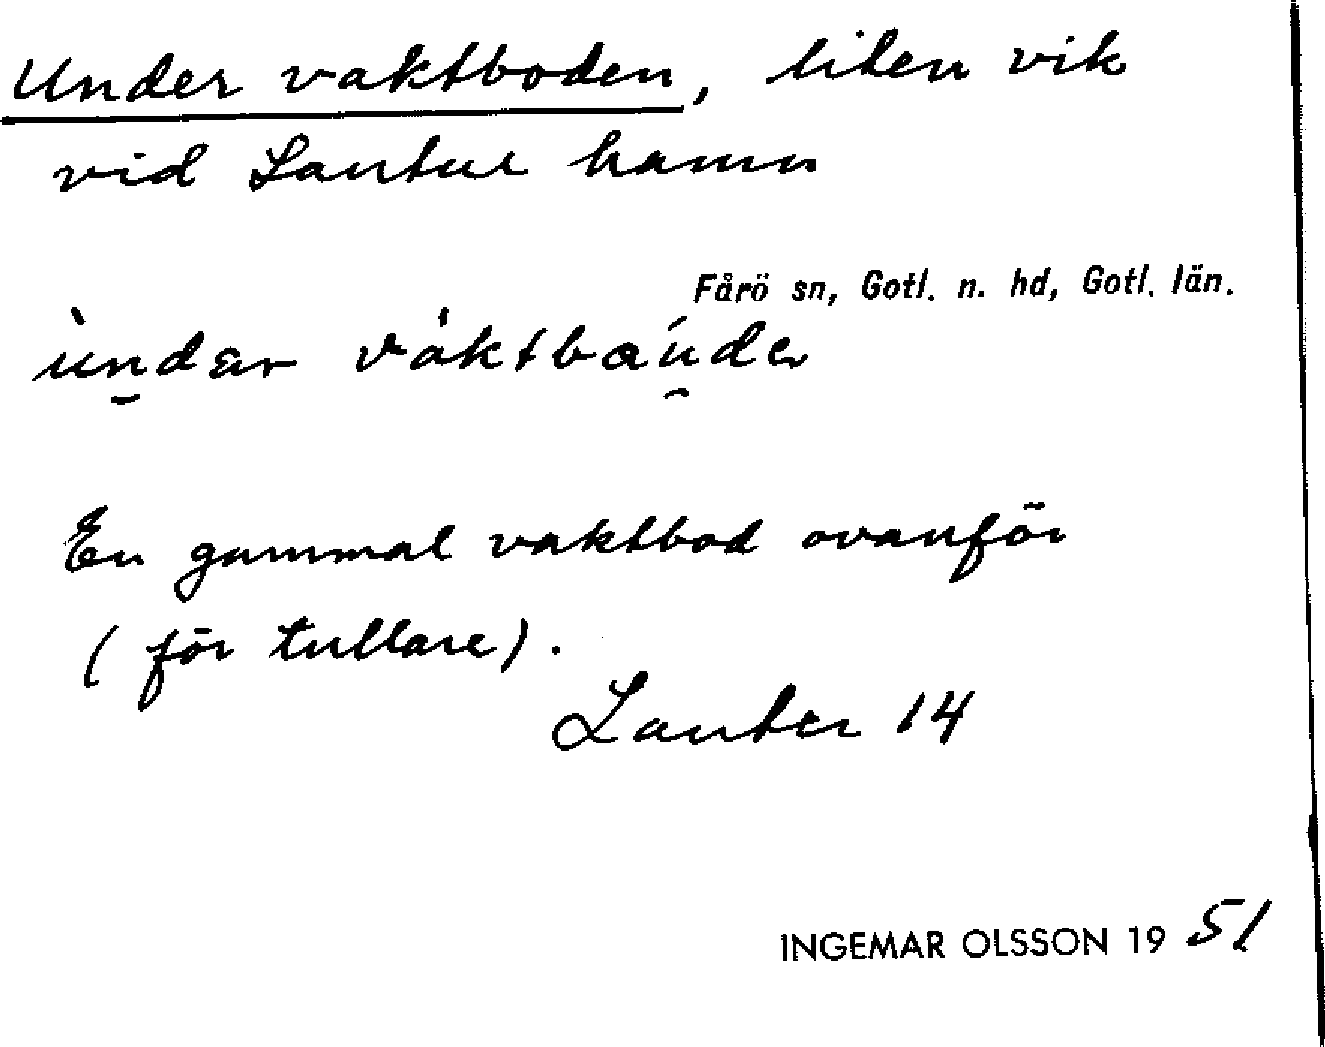 Under vaktboden, liten vik
vid Lautur hamn
Fårö sn, Gotl. n. hd, Gotl. län.
ùndar våktbæúdẹ
En gammal vaktbod ovanför
( för tullare).
Lauter 14
INGEMAR OLSSON 19 51